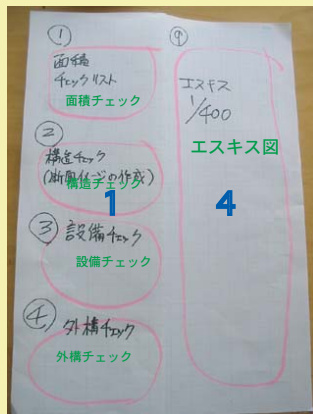 ①
面積
チェックリスト
面積チェック
②
構造チェック
(断面イメージの作成)
構造チェック
1
③ 設備チェック
設備チェック
④ 外構チェック
外構チェック
⑨
エスキス
1/400
エスキス図
4